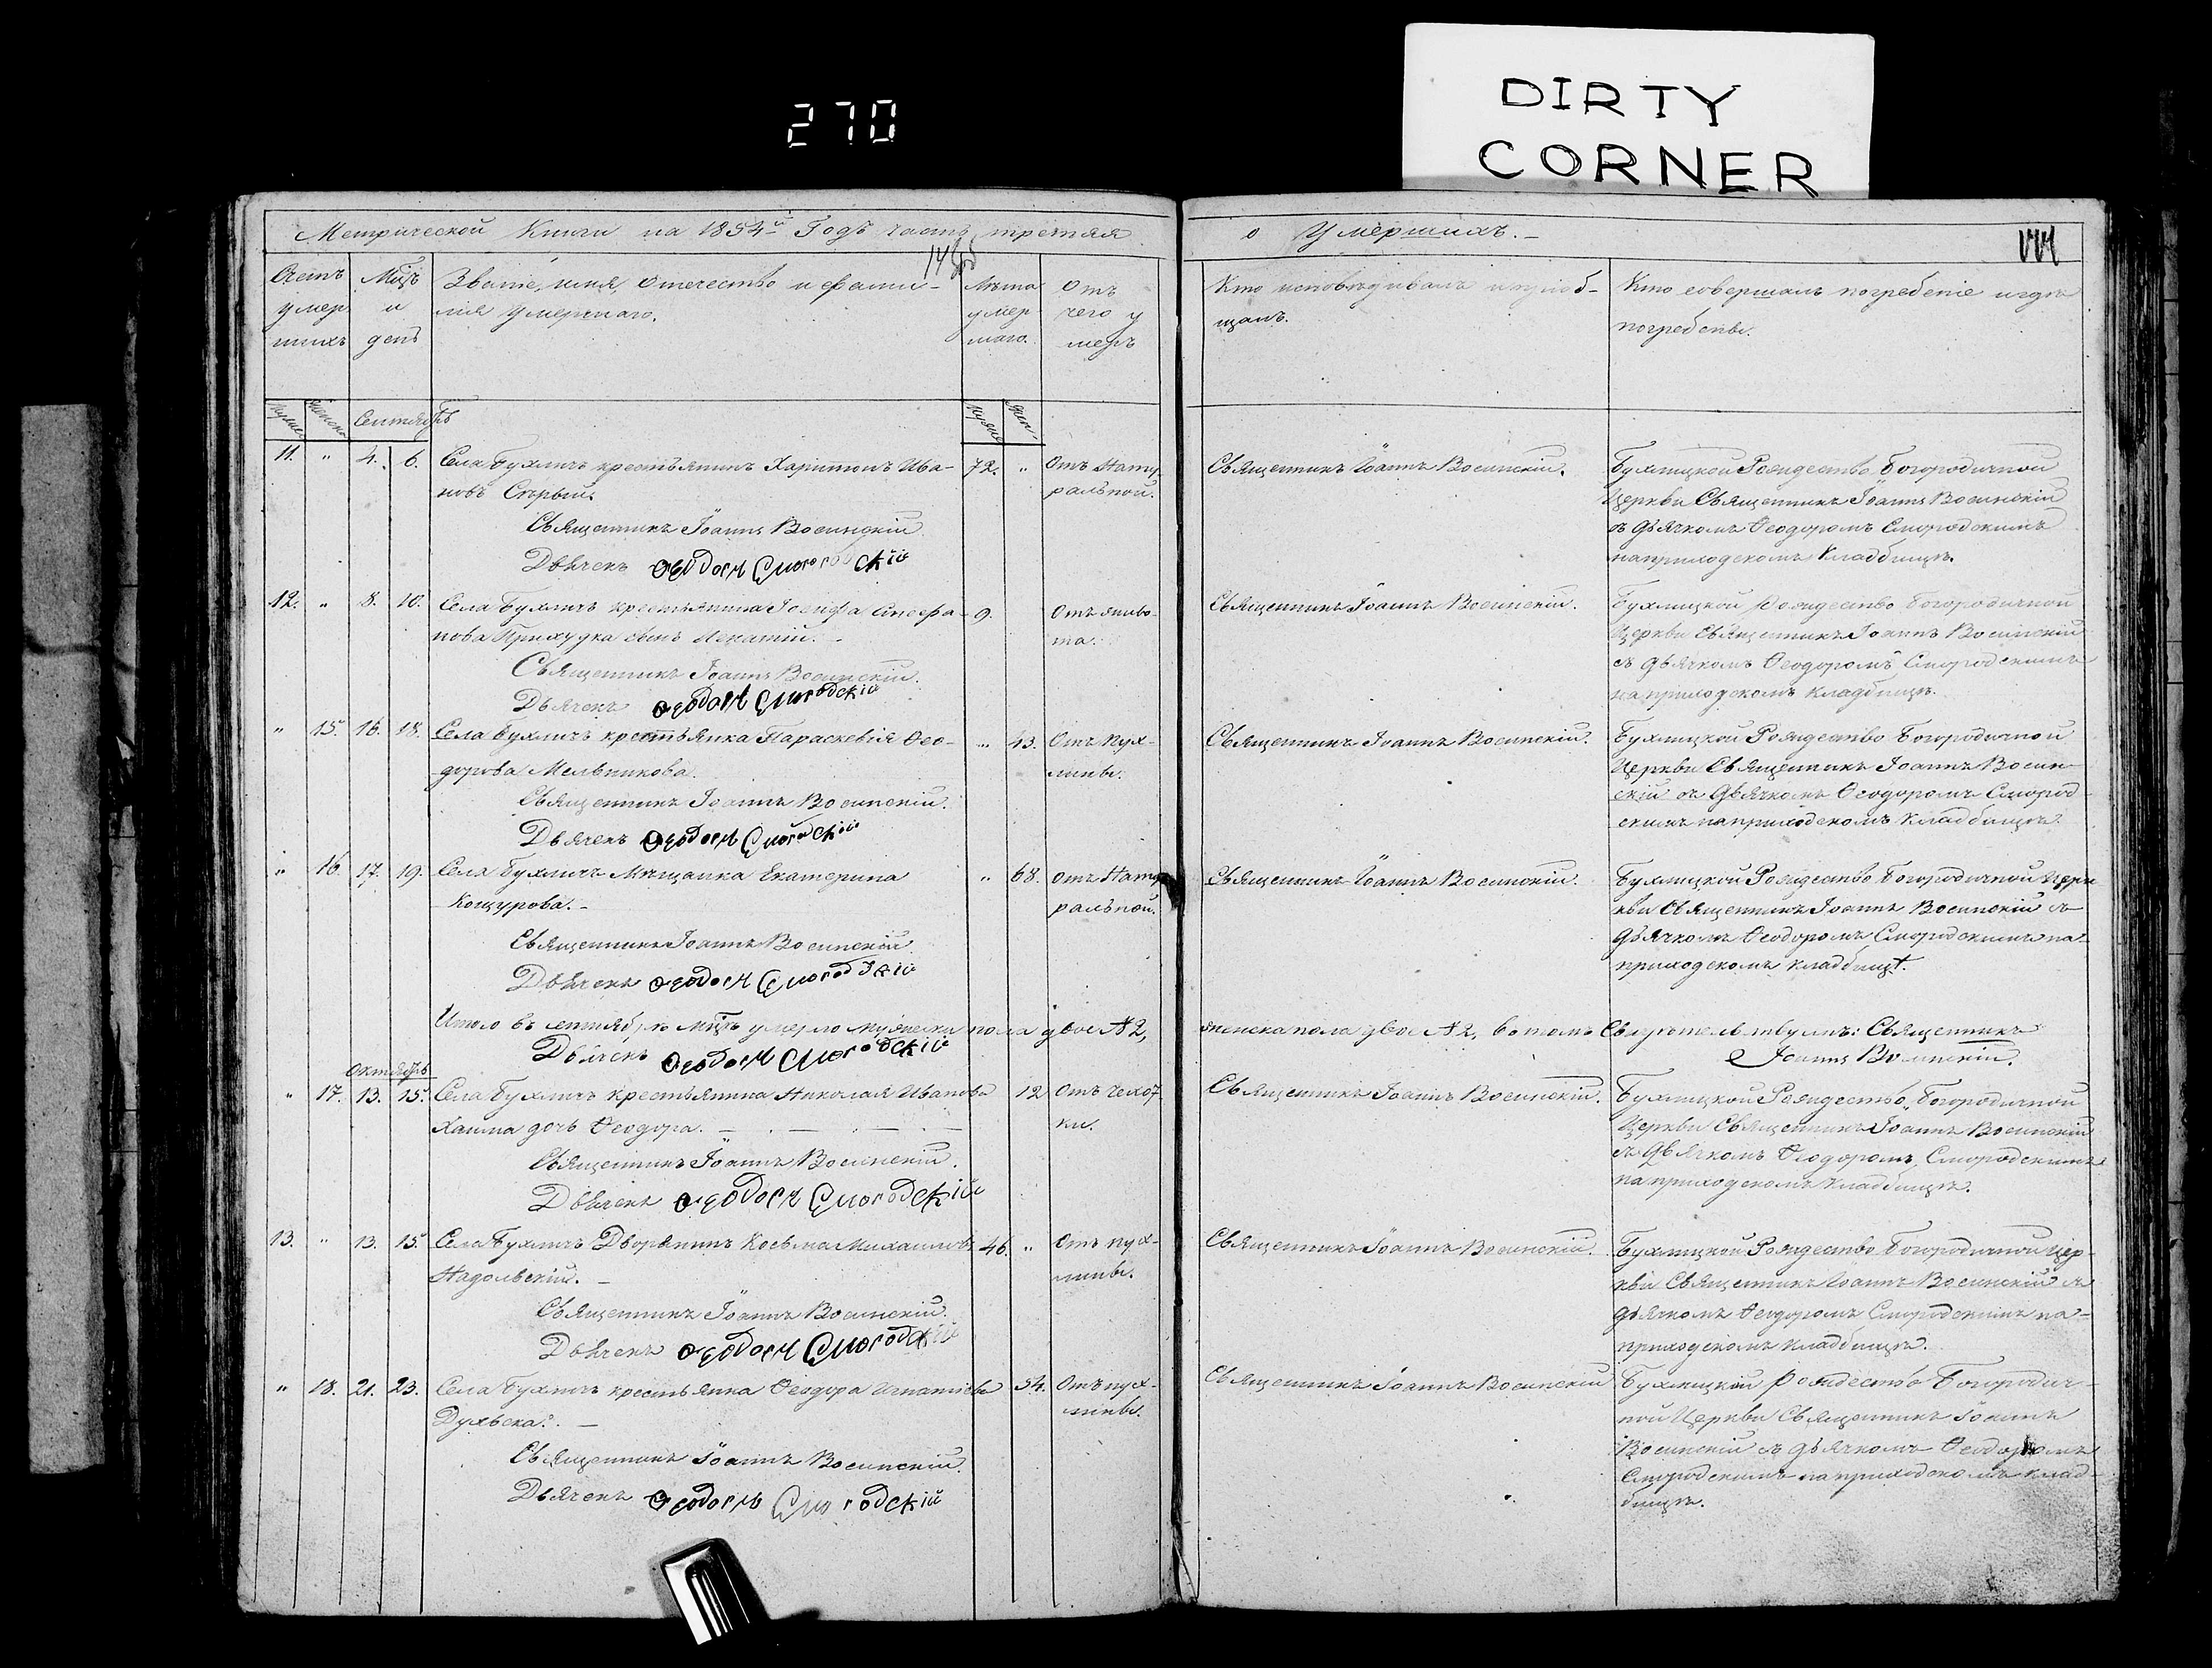 270
DIRTY
CORNER
Метрической Книги на 1854й Годъ часть третяя
о Умершихъ.
Счетъ умер шихъ
Мцъ и день
Званіе, имя, отечество и фами-
лія Умершаго.
Лѣта умер шаго.
Отъ чего у меръ
Кто исповѣдывалъ и пріоб-
щалъ.
Кто совершалъ погребеніе и гдѣ
погребены.
Сентябрь
11. " 4. 6. Села Бухличъ крестьянинъ Харитонъ Ива- 72. " Отъ Нату
новъ Сѣрый. ральной.
Священникъ Іоаннъ Восинскій
Дьячекъ Ѳеодоръ Смородскій
Священникъ Іоаннъ Восинскій.
Бухлицкой Рождество Богородичной
Церкви Священникъ Іоаннъ Восинскій
съ дьячкомъ Ѳеодоромъ Смородскимъ
на приходскомъ Кладбищѣ.
12. " 8. 10. Села Бухличъ крестьянина Іосифа Стефа- 9.
нова сынъ
Отъ живо-
та.
Священникъ Іоаннъ Восинскій.
Дьячекъ Ѳеодоръ Смородскій
Священникъ Іоаннъ Восинскій.
Бухлицкой Рождество Богородичной
Церкви Священникъ Іоаннъ Восинскій
съ дьячкомъ Ѳеодоромъ Смородскимъ
на приходскомъ кладбищѣ.
" 15. 16. 18. Села Бухличъ крестьянка Параскевія Ѳео- " 43. Отъ пух-
дорова Мельникова. лины.
Священникъ Іоаннъ Восинскій.
Дьячекъ Ѳеодоръ Смородскій
Священникъ Іоаннъ Восинскій.
Бухлицкой Рождество Богородичной
Церкви Священникъ Іоаннъ Восин-
скій съ дьячкомъ Ѳеодоромъ Смород-
скимъ на приходскомъ кладбищѣ.
" 16. 17. 19. Села Бухличъ Мѣщанка Екатерина " 68. отъ Нату
Кощурова. ральной.
Священникъ Іоаннъ Восинскій
Дьячекъ Ѳеодоръ Смородскій
Священникъ Іоаннъ Восинскій.
Бухлицкой Рождество Богородичной Цер
кви Священникъ Іоаннъ Восинскій съ
дьячкомъ Ѳеодоромъ Смородскимъ на-
приходскомъ кладбищѣ.
Итого въ сентябрѣ мцѣ умерло мужеска пола двое № 2, женска пола двое № 2, въ томъ Свидѣтельствуемъ: Священникъ
Іоаннъ Восинскій.
Дьячекъ Ѳеодоръ Смородскій
Октябрь
" 17. 13. 15. Села Бухличъ крестьянина Николая Иванова 12 Отъ чехот
дочь Ѳеодора. ки.
Священникъ Іоаннъ Восинскій.
Дьячекъ Ѳеодоръ Смородскій
Священникъ Іоаннъ Восинскій.
Бухлицкой Рождество Богородичной
Церкви Священникъ Іоаннъ Восинскій
съ Дьячкомъ Ѳеодоромъ Смородскимъ
на приходскомъ кладбищѣ.
13. " 13. 15. Села Бухличъ Дворянинъ Косьма Михаиловъ 46. " Отъ пух-
Надольскій. лины.
Священникъ Іоаннъ Восинскій.
Дьячекъ Ѳеодоръ Смородскій
Священникъ Іоаннъ Восинскій.
Бухлицкой Рождество Богородичной Цер-
кви Священникъ Іоаннъ Восинскій съ
дьячкомъ Ѳеодоромъ Смородскимъ на-
приходскомъ кладбищѣ.
" 18. 21. 23. Села Бухличъ крестьянка Ѳеодора Игнатіева 54. Отъ пух-
лины.
Священникъ Іоаннъ Восинскій.
Дьячекъ Ѳеодоръ Смородскій
Священникъ Іоаннъ Восинскій
Бухлицкой Рождество Богородич-
ной Церкви Священникъ Іоаннъ
Восинскій съ дьячкомъ Ѳеодоромъ
Смородскимъ на приходскомъ клад-
бищѣ.